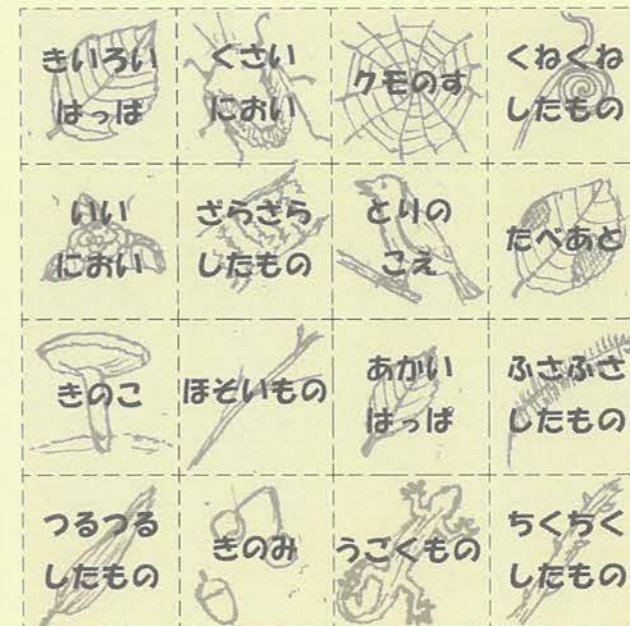 きいろい
はっぱ
くさい
におい
クモのす
くねくね
したもの
いい
におい
ざらざら
したもの
とりの
こえ
たべあと
きのこ
ほそいもの
あかい
はっぱ
ふさふさ
したもの
つるつる
したもの
きのみ
うごくもの
ちくちく
したもの